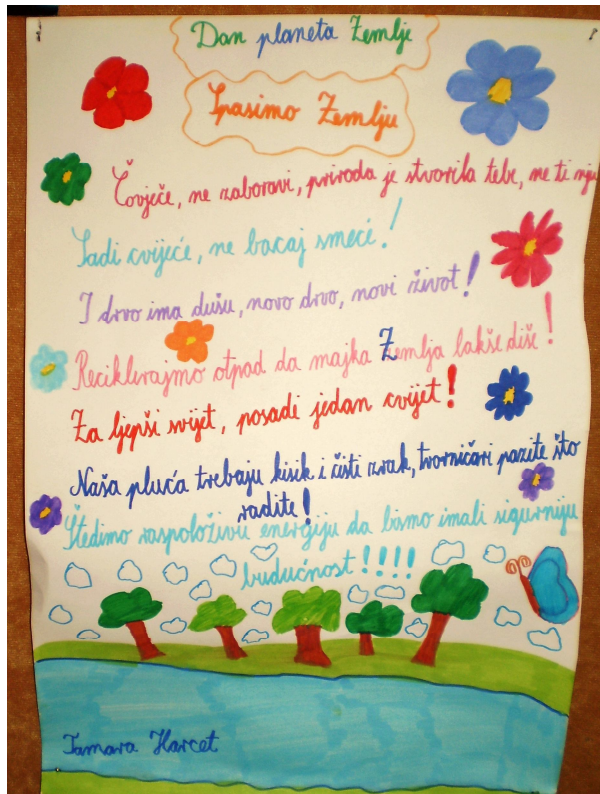 Dan planeta Zemlje
Spasimo Zemlju
Čovječe, ne zaboravi, priroda je stvorila tebe, ne ti nju
Sadi cvijeće, ne bacaj smeće!
I drvo ima dušu, novo drvo, novi život!
Reciklirajmo otpad da majka Zemlja lakše diše!
Za ljepši svijet, posadi jedan cvijet!
Naša pluća trebaju kisik i čisti zrak, tvorničari pazite što
radite!
Štedimo raspoloživu energiju da bismo imali sigurniju
budućnost!!!!
Tamara Harcet